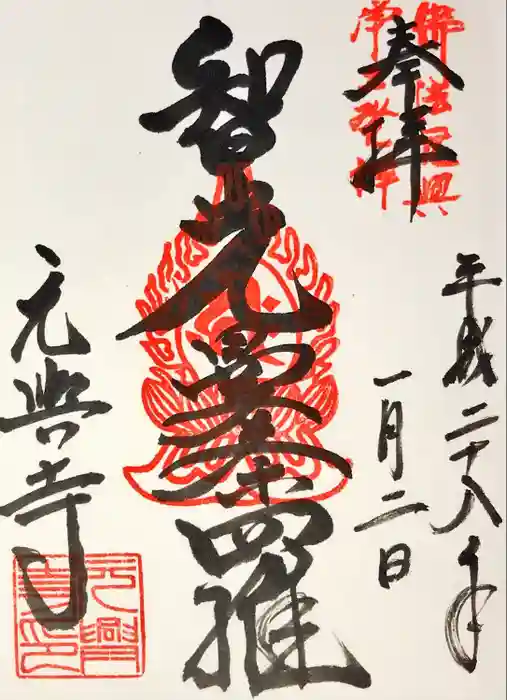 奉拝
平成二十八年
一月二日
智光曼荼羅
元興寺